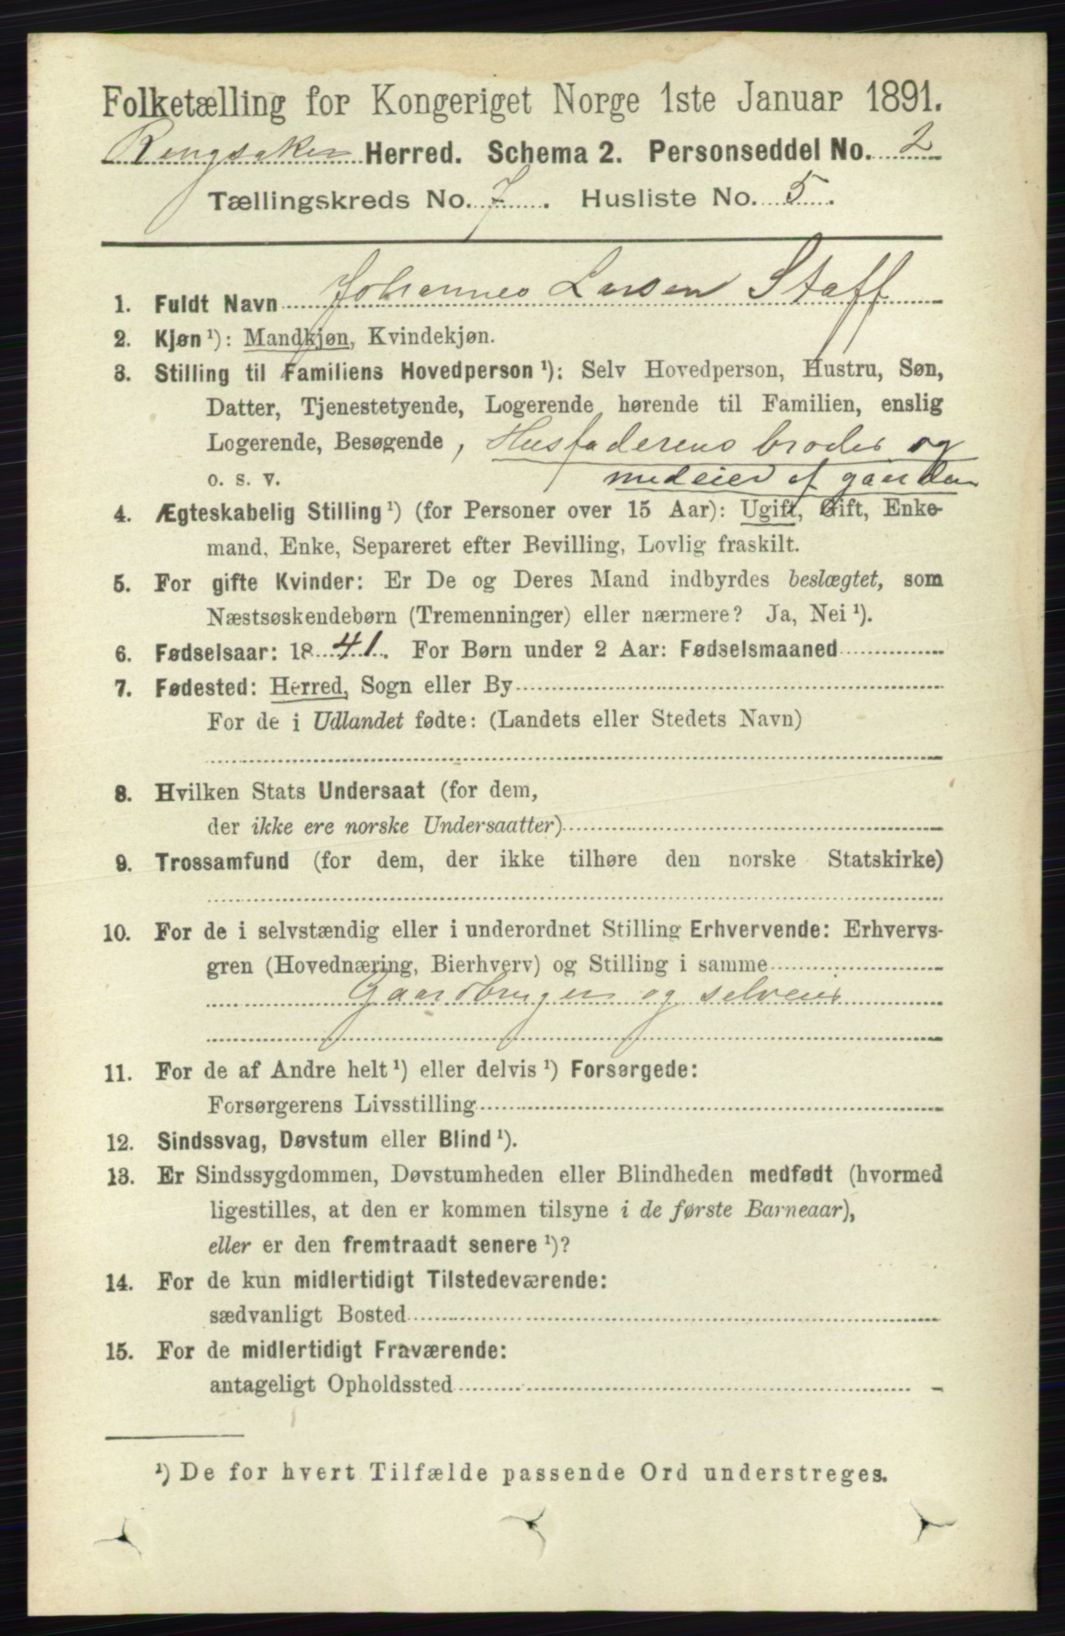 Folketælling for Kongeriget Norge 1ste Januar 1891.
Ringsaker Herred. Schema 2. Personseddel No. 2
Tællingskreds No. 7. Husliste No. 5.
1. Fuldt Navn Johannes Larsen Staff
2. Kjøn ¹): Mandkjøn, Kvindekjøn.
3. Stilling til Familiens Hovedperson ¹): Selv Hovedperson, Hustru, Søn,
Datter, Tjenestetyende, Logerende hørende til Familien, enslig
Logerende, Besøgende, Husfaderens broder og
o. s. v. medeier af gaarden
4. Ægteskabelig Stilling ¹) (for Personer over 15 Aar): Ugift, Gift, Enke-
mand, Enke, Separeret efter Bevilling, Lovlig fraskilt.
5. For gifte Kvinder: Er De og Deres Mand indbyrdes beslægtet, som
Næstsøskendebørn (Tremenninger) eller nærmere? Ja, Nei ¹).
6. Fødselsaar: 1841. For Børn under 2 Aar: Fødselsmaaned
7. Fødested: Herred, Sogn eller By
For de i Udlandet fødte: (Landets eller Stedets Navn)
8. Hvilken Stats Undersaat (for dem,
der ikke ere norske Undersaatter)
9. Trossamfund (for dem, der ikke tilhøre den norske Statskirke)
10. For de i selvstændig eller i underordnet Stilling Erhvervende: Erhvervs-
gren (Hovednæring, Bierhverv) og Stilling i samme
Gaardbruger og selveier
11. For de af Andre helt ¹) eller delvis ¹) Forsørgede:
Forsørgerens Livsstilling
12. Sindssvag, Døvstum eller Blind ¹).
13. Er Sindssygdommen, Døvstumheden eller Blindheden medfødt (hvormed
ligestilles, at den er kommen tilsyne i de første Barneaar),
eller er den fremtraadt senere ¹)?
14. For de kun midlertidigt Tilstedeværende:
sædvanligt Bosted
15. For de midlertidigt Fraværende:
antageligt Opholdssted
¹) De for hvert Tilfælde passende Ord understreges.